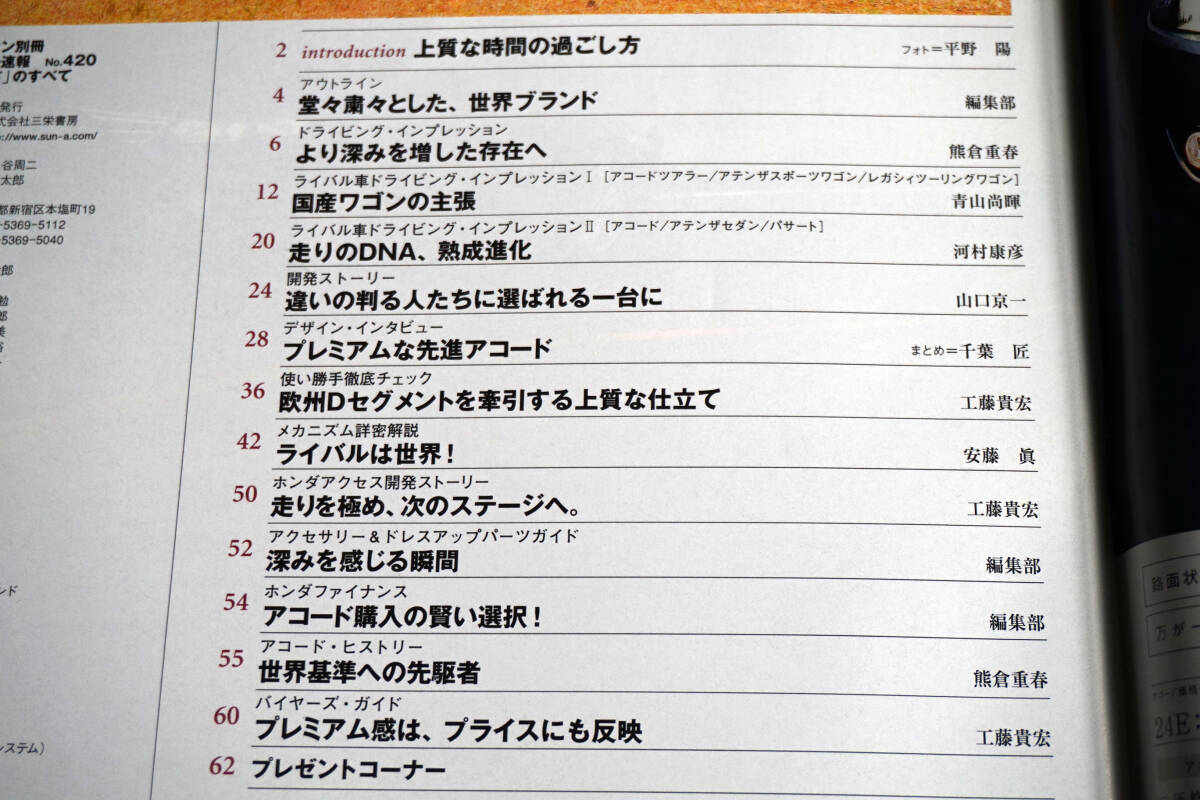 ン別冊
速報 No.420
」のすべて
発行
式会社三栄書房
://www.sun-a.com/
谷周二
太郎
都新宿区本塩町19
-5369-5112
-5369-5040
郎
勉
郎
美
ンド
システム)
2 introduction 上質な時間の過ごし方 フォト=平野 陽
アウトライン
4 堂々粛々とした、世界ブランド 編集部
ドライビング・インプレッション
6 より深みを増した存在へ 熊倉重春
ライバル車ドライビング・インプレッションⅠ [アコードツアラー/アテンザスポーツワゴン/レガシィツーリングワゴン]
12 国産ワゴンの主張 青山尚暉
ライバル車ドライビング・インプレッションⅡ [アコード/アテンザセダン/パサート]
20 走りのDNA、熟成進化 河村康彦
開発ストーリー
24 違いの判る人たちに選ばれる一台に 山口京一
デザイン・インタビュー
28 プレミアムな先進アコード まとめ=千葉 匠
使い勝手徹底チェック
36 欧州Dセグメントを牽引する上質な仕立て 工藤貴宏
メカニズム詳密解説
42 ライバルは世界! 安藤 眞
ホンダアクセス開発ストーリー
50 走りを極め、次のステージへ。 工藤貴宏
アクセサリー&ドレスアップパーツガイド
52 深みを感じる瞬間 編集部
ホンダファイナンス
54 アコード購入の賢い選択! 編集部
アコード・ヒストリー
55 世界基準への先駆者 熊倉重春
バイヤーズ・ガイド
60 プレミアム感は、プライスにも反映 工藤貴宏
62 プレゼントコーナー
路面状
万が一
アコード価格
24E: